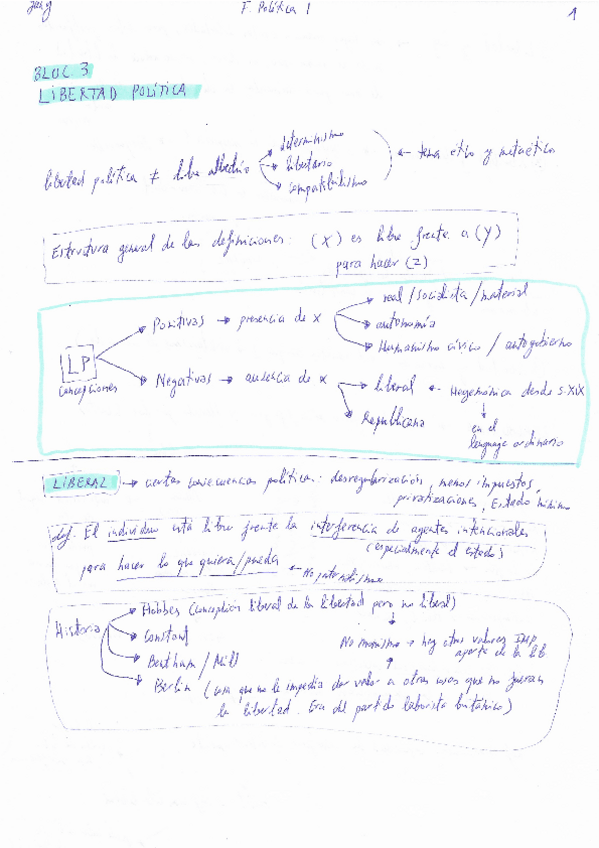 F. Política 1
1
BLOC 3
LIBERTAD POLÍTICA
libertad política ≠ libre albedrío
determinismo
libertario
compatibilismo
← tema ético y metaético
Estructura general de las definiciones: (X) es libre frente a (Y)
para hacer (Z)
LP
Concepciones
Positivas → presencia de x
real/socialista/material
autonomía
Humanismo cívico / autogobierno
Negativas → ausencia de x
liberal ← Hegemónica desde s. XIX
en el
lenguaje ordinario
Republicana
LIBERAL → ciertas consecuencias políticas: desregularización, menos impuestos,
privatizaciones, Estado mínimo
def. El individuo está libre frente la interferencia de agentes intencionales
(especialmente el estado)
para hacer lo que quiera/pueda ← No paternalismo
Historia
Hobbes (concepción liberal de la libertad pero no liberal)
Constant
No monismo → hay otros valores IMP
aparte de la lib
Bentham / Mill
Berlin (cosa que no le impedía dar valor a otras cosas que no fueran
la libertad. Era del partido laborista británico)